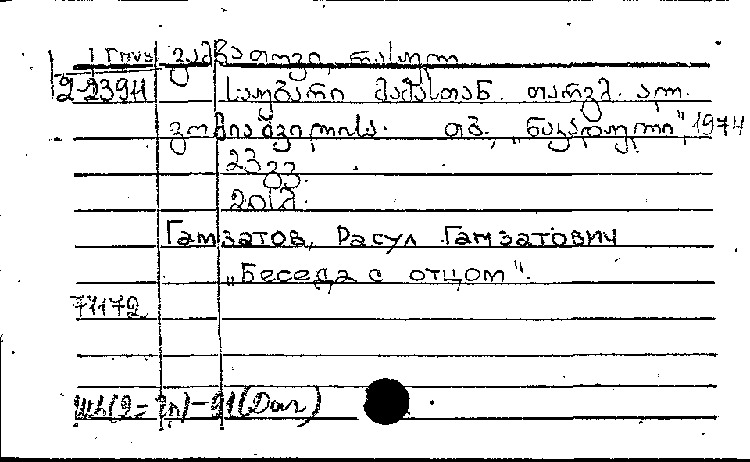 გამზათოვი, რასულ
2-23911 საუბარი მამასთან. თარგმ. ალ.
გომიაშვილისა. თბ., „ნაკადული", 1974
23 გვ.
Гамзатов, Расул Гамзатович
„Беседа с отцом".
77172